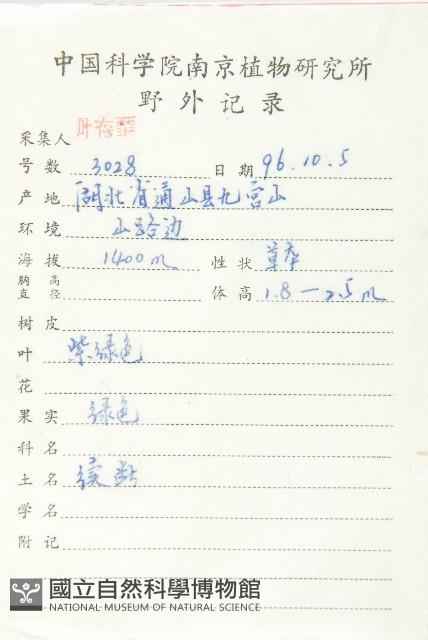 中国科学院南京植物研究所
野外记录
采集人
号数 3028 日期 96.10.5
产地 湖北省通山县九宫山
环境 山路边
海拔 1400 m 性状 草本
胸高直径 体高 1.8—2.5 m
树皮
叶 紫绿色
花
果实 绿色
科名
土名 续断
学名
附记
國立自然科學博物館
NATIONAL MUSEUM OF NATURAL SCIENCE